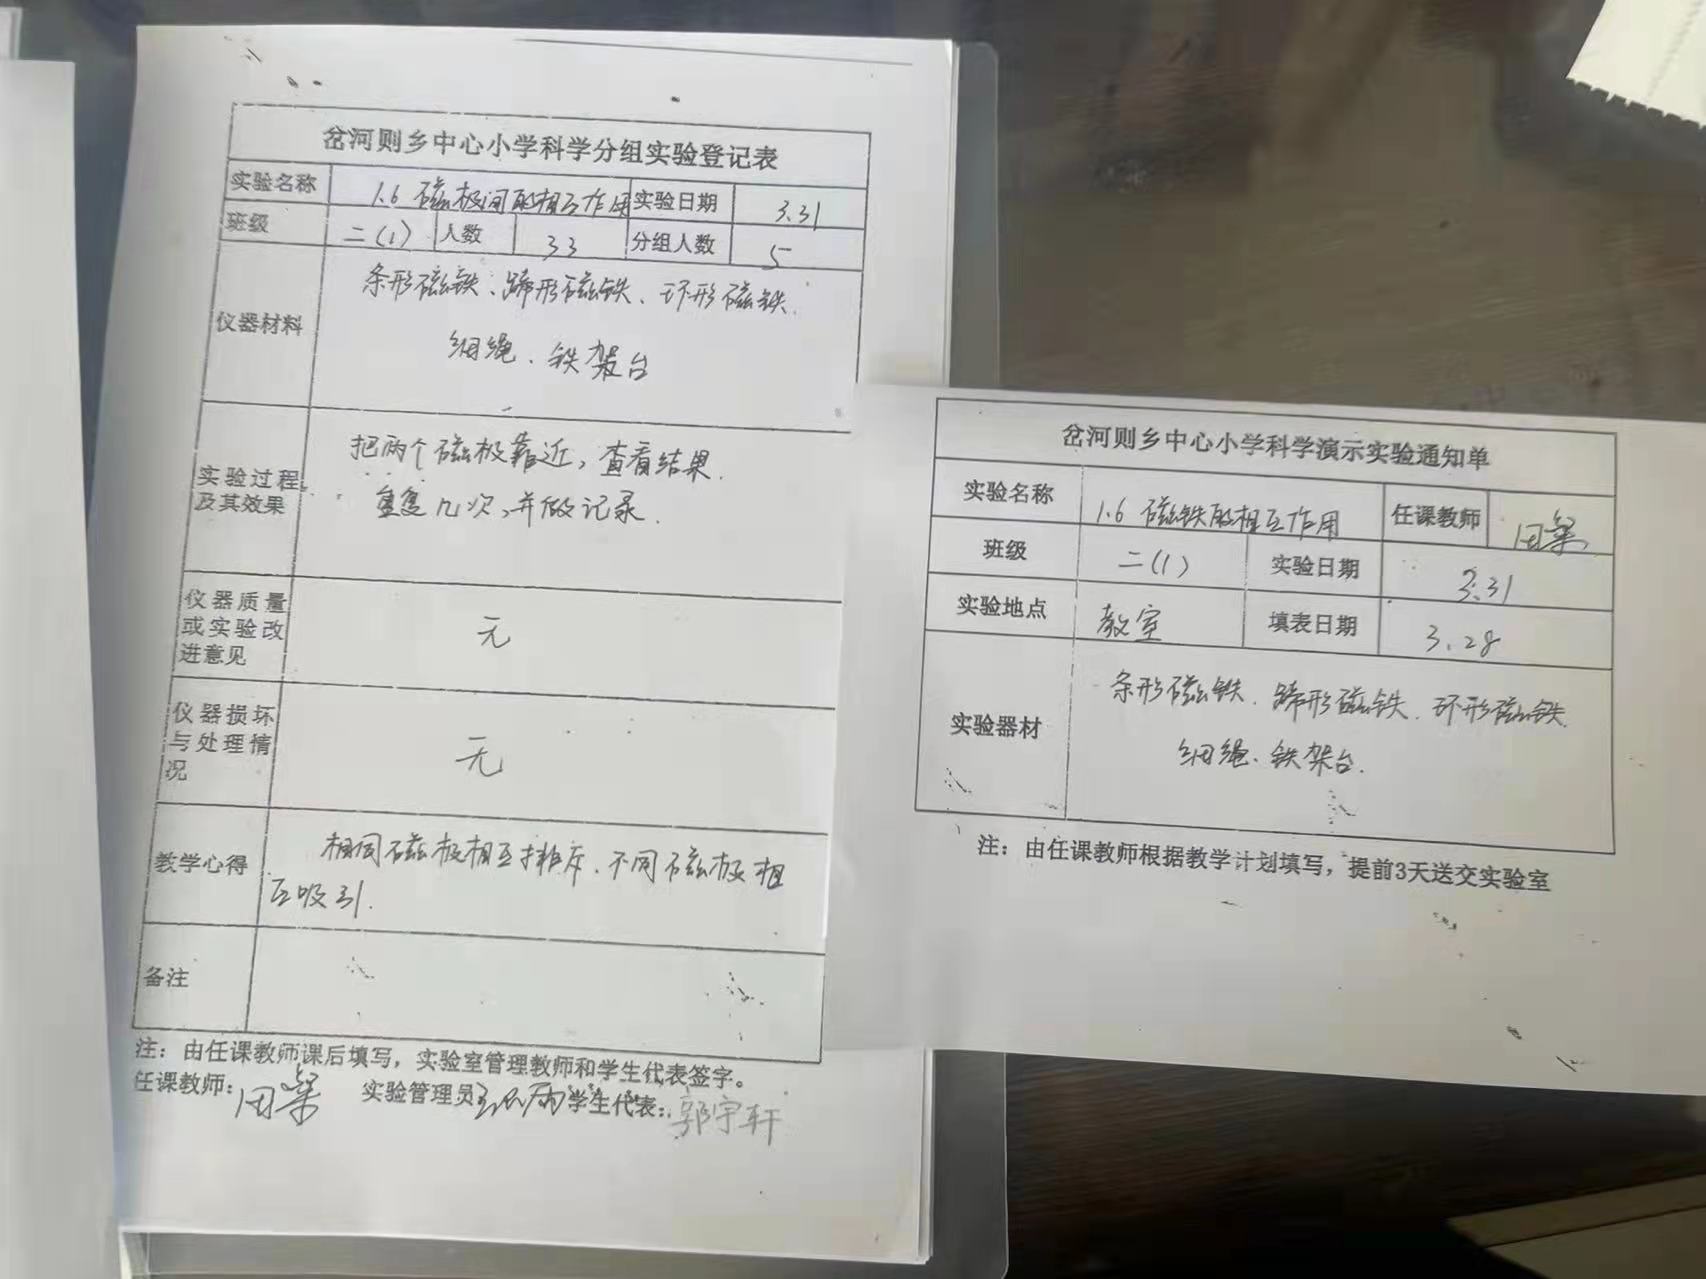 岔河则乡中心小学科学分组实验登记表
实验名称 1.6 磁极间的相互作用 实验日期 3.31
班级 二(1) 人数 33 分组人数 5
仪器材料
条形磁铁、蹄形磁铁、环形磁铁.
细绳、铁架台
实验过程
及其效果
把两个磁极靠近,查看结果.
重复几次,并做记录.
仪器质量
或实验改
进意见
无
仪器损坏
与处理情
况
无
教学心得
相同磁极相互排斥、不同磁极相
互吸引.
备注
注：由任课教师课后填写，实验室管理教师和学生代表签字。
任课教师：田梁 实验管理员 学生代表：郭宇轩
岔河则乡中心小学科学演示实验通知单
实验名称 1.6 磁铁的相互作用 任课教师 田梁
班级 二(1) 实验日期 3.31
实验地点 教室 填表日期 3.28
实验器材
条形磁铁、蹄形磁铁、环形磁铁.
细绳、铁架台.
注：由任课教师根据教学计划填写，提前3天送交实验室